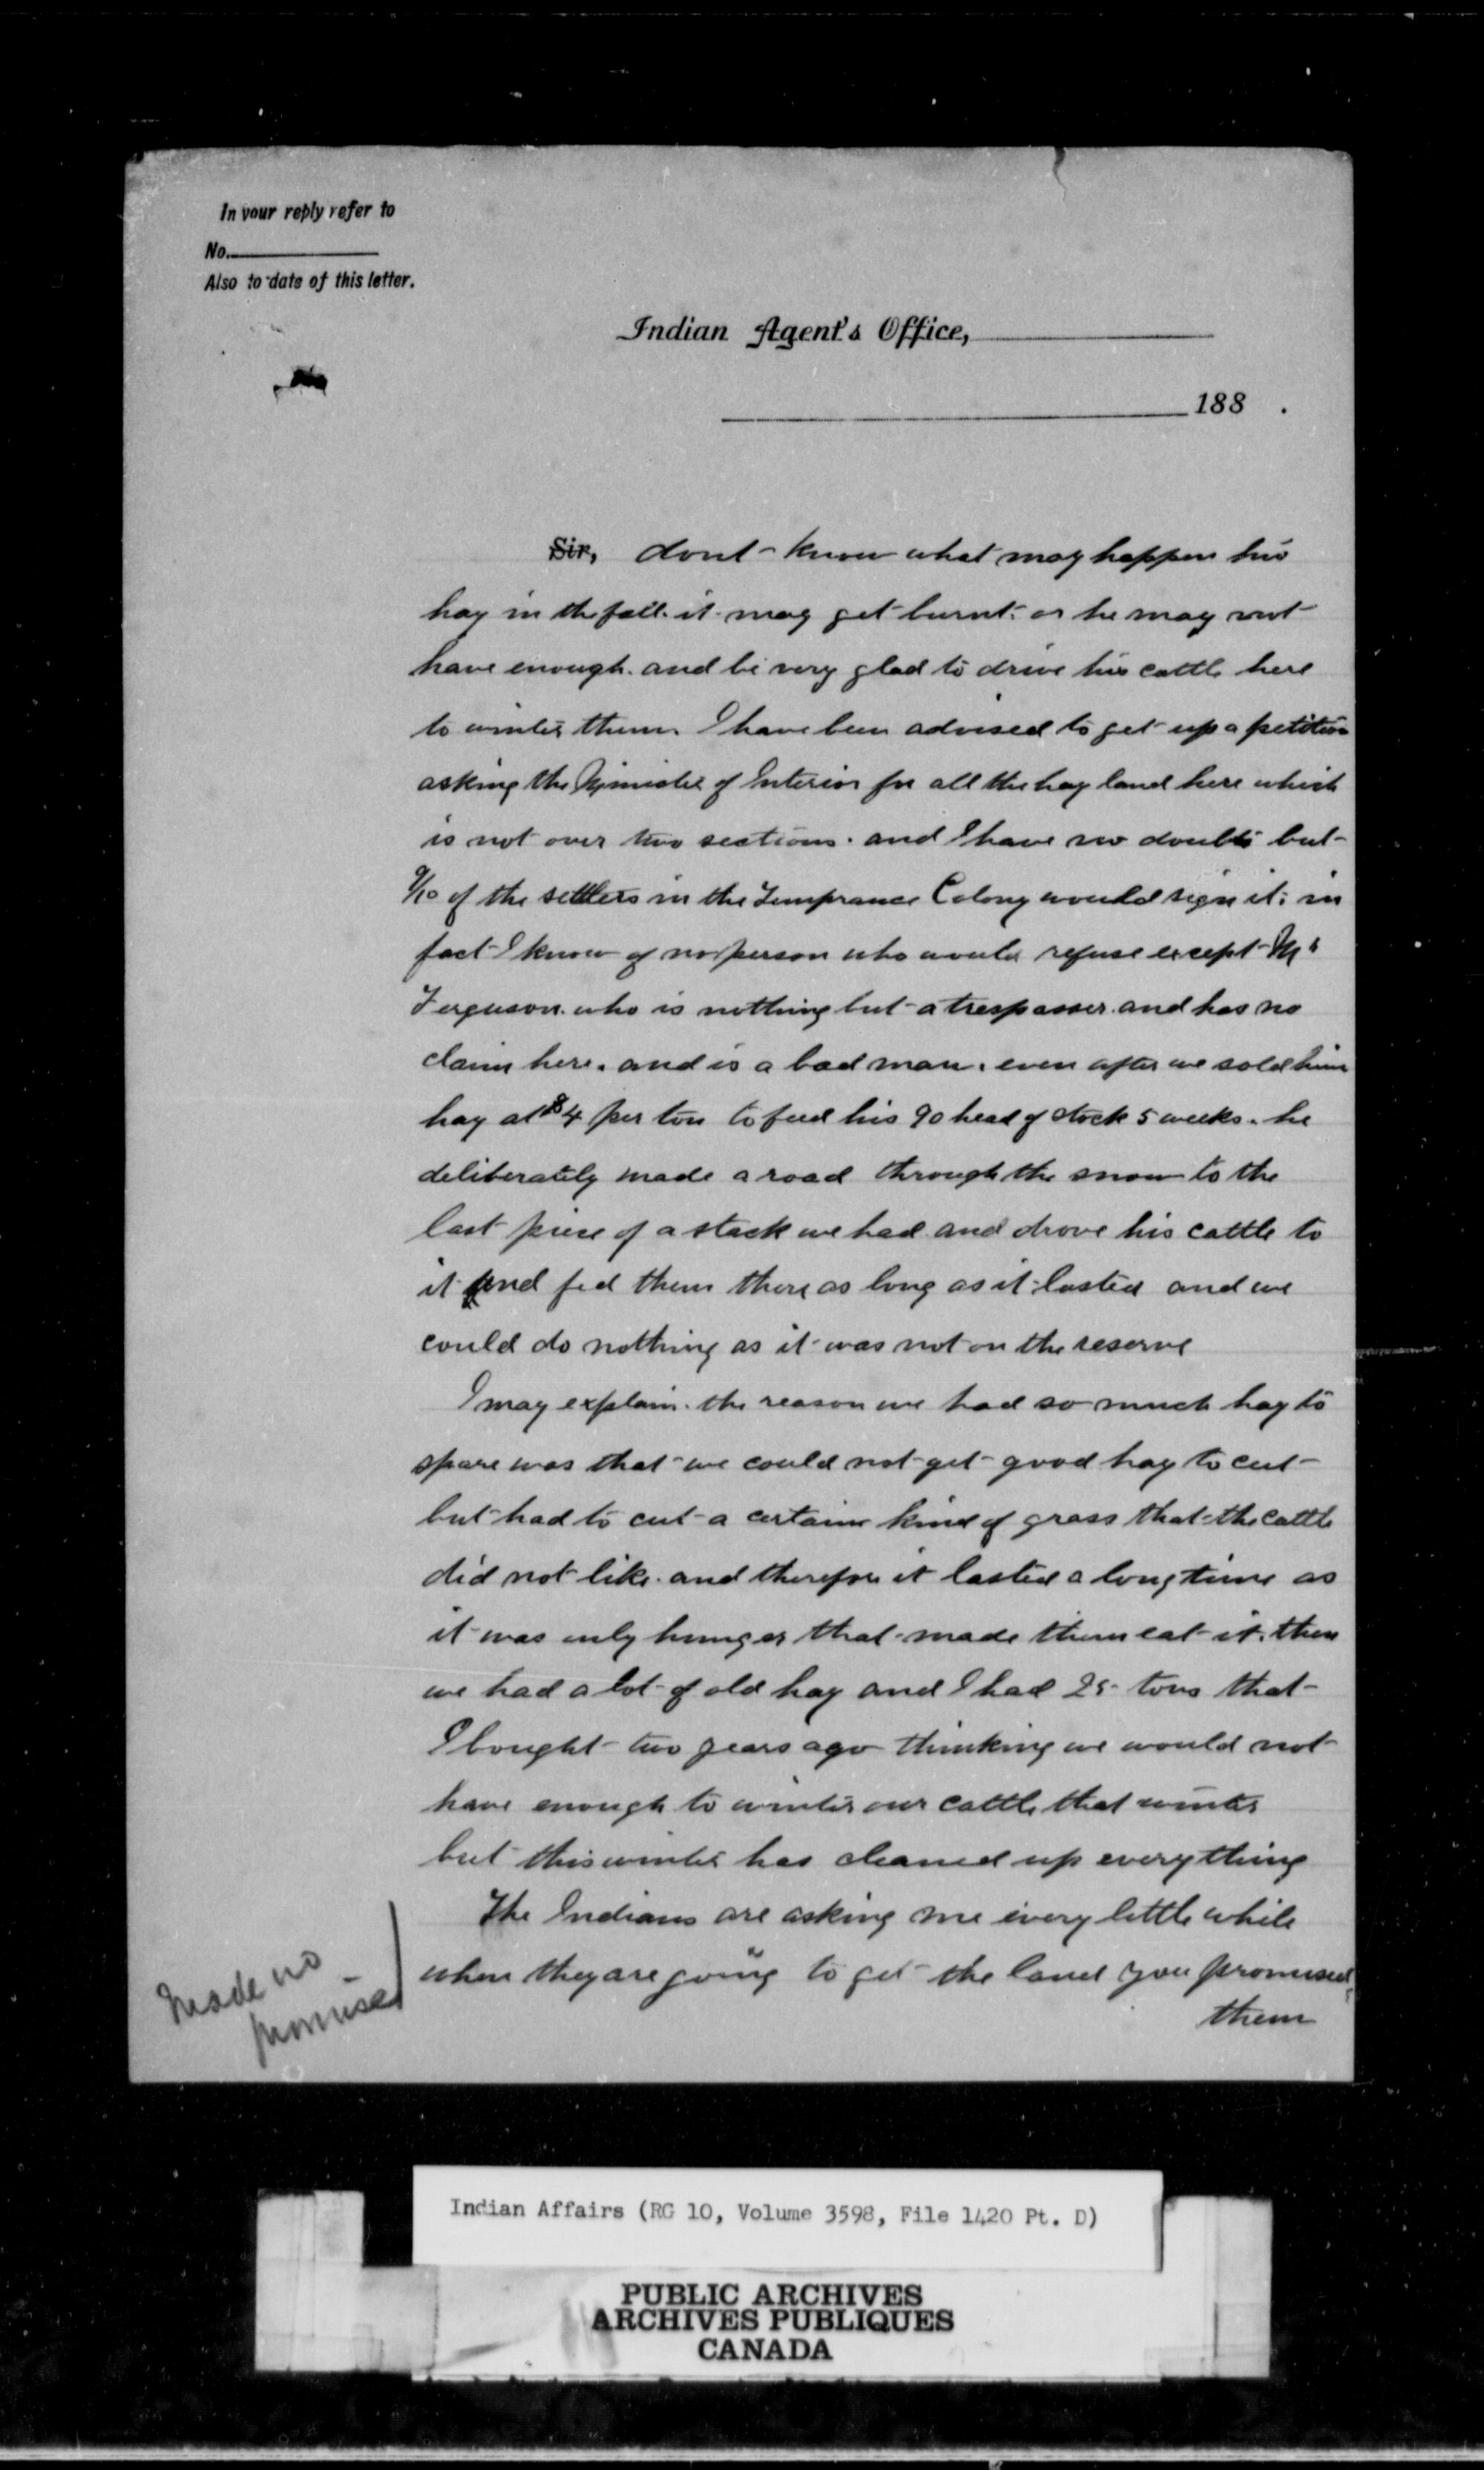 In your reply refer to
No.
Also to date of this letter.
Indian Agent's Office,
188 .
Sir, dont know what may happen his
hay in the fall. it may get burnt. or he may not
have enough. and be very glad to drive his cattle here
to winter them. I have been advised to get up a petition
asking the Minister of Interior for all the hay land here which
is not over two sections. and I have no doubt but
9/10 of the settlers in the Temprance Colony would sign it. in
fact I know of no person who would refuse except Mr
Ferguson. who is nothing but a trespasser. and has no
claim here. and is a bad man. even after we sold him
hay at $4 per ton to feed his 90 head of stock 5 weeks. he
deliberately made a road through the snow to the
last piece of a stack we had and drove his cattle to
it and fed them there as long as it lasted and we
could do nothing as it was not on the reserve
I may explain. the reason we had so much hay to
spare was that we could not get good hay to cut
but had to cut a certain kind of grass that the cattle
did not like. and therefore it lasted a long time as
it was only hunger that made them eat it. then
we had a lot of old hay and I had 25 tons that
I bought two years ago thinking we would not
have enough to winter our cattle that winter
but this winter has cleaned up everything
The Indians are asking me every little while
when they are going to get the land you promised
them
Made no
promises
Indian Affairs (RG 10, Volume 3598, File 1420 Pt. D)
PUBLIC ARCHIVES
ARCHIVES PUBLIQUES
CANADA